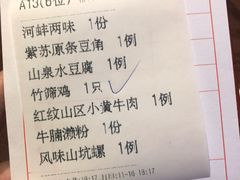 A13(6位)
河蚌两味 1份
紫苏原条豆角 1例
山泉水豆腐 1例
竹筛鸡 1只
红纹山区小黄牛肉 1例
牛腩濑粉 1份
风味山坑螺 1例